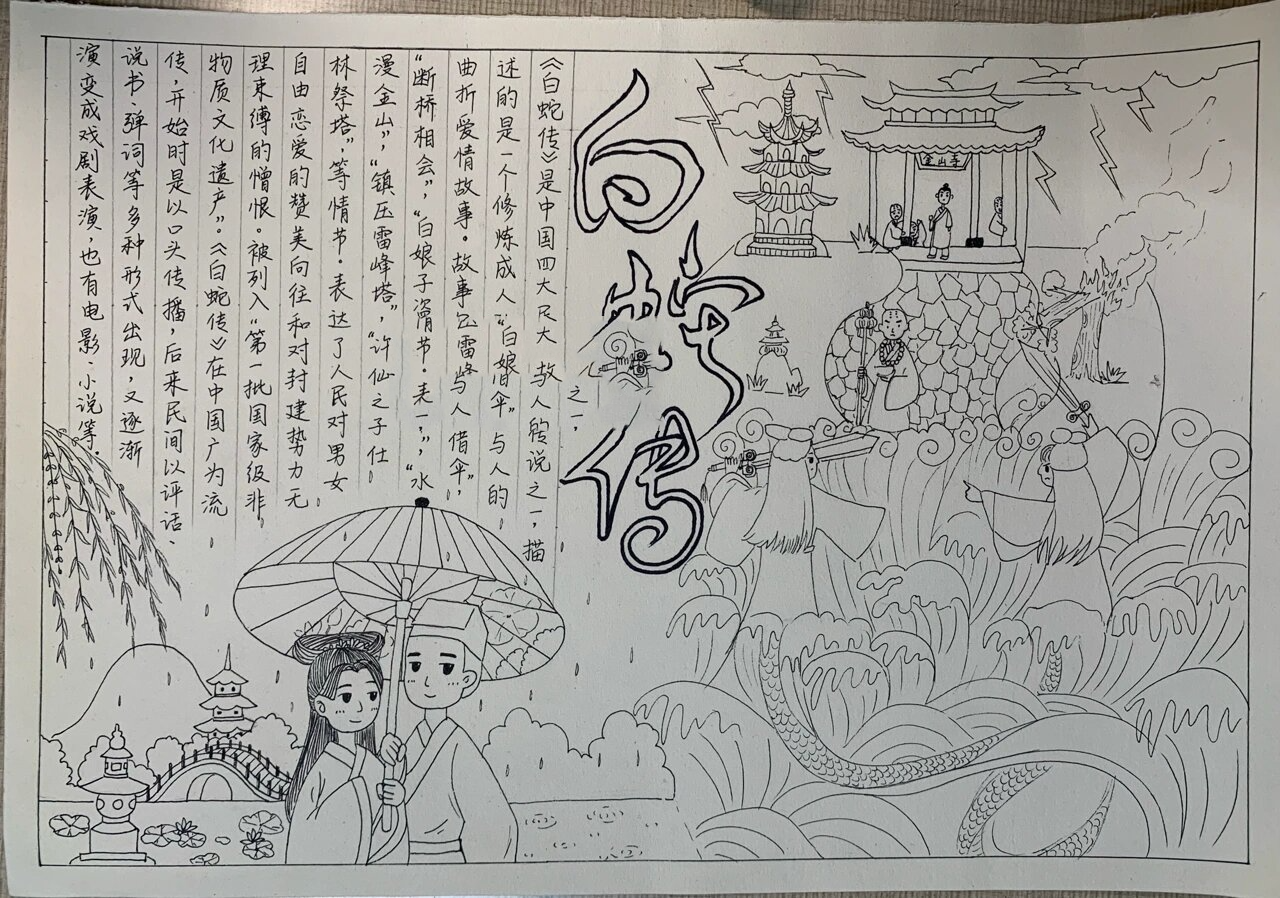 白蛇传
金山寺
之一，
《白蛇传》是中国四大 故人的说之一，描
述的是一个修炼成人"白娘伞" 与人的
曲折爱情故事。故事包雷峰与人借伞"，
"断桥相会"，"白娘子滑节。表一，"，"水
漫金山"，"镇压雷峰塔"，"许仙之子仕
林祭塔"，等情节。表达了人民对男女
自由恋爱的赞美向往和对封建势力无
理束缚的憎恨。被列入"第一批国家级非
物质文化遗产"。《白蛇传》在中国广为流
传，开始时是以口头传播，后来民间以评话、
说书、弹词等多种形式出现，又逐渐
演变成戏剧表演，也有电影、小说等。